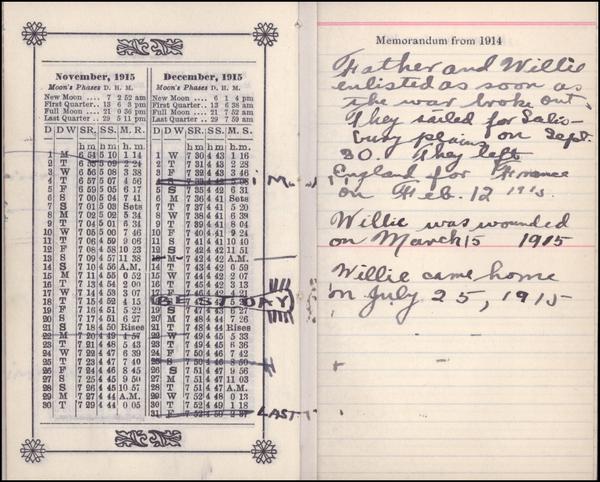 November, 1915
Moon's Phases D. H. M.
New Moon .... 7 2 52 am
First Quarter.. 13 6 3 pm
Full Moon .... 21 0 36 pm
Last Quarter.. 29 5 11 pm
D DW SR. SS. M. R.
h m h m h. m.
1 M 6 54 5 10 1 14
3 W 6 56 5 08 3 38
4 T 6 57 5 07 4 56
5 F 6 59 5 05 6 17
6 S 7 00 5 04 7 41
7 S 7 01 5 03 Sets
8 M 7 02 5 02 5 34
9 T 7 04 5 01 6 24
10 W 7 05 5 00 7 46
11 T 7 06 4 59 9 06
12 F 7 08 4 58 10 23
13 S 7 09 4 57 11 38
14 S 7 10 4 56 A.M.
15 M 7 11 4 55 0 52
16 T 7 13 4 54 2 00
17 W 7 14 4 53 3 07
18 T 7 15 4 52 4 15
19 F 7 16 4 51 5 22
20 S 7 17 4 51 6 27
21 S 7 18 4 50 Rises
22 M 7 20 4 49 4 57
23 T 7 21 4 48 5 43
24 W 7 22 4 47 6 39
25 T 7 23 4 47 7 40
26 F 7 24 4 46 8 45
27 S 7 25 4 45 9 50
28 S 7 26 4 45 10 57
29 M 7 27 4 44 A.M.
30 T 7 29 4 44 0 05
December, 1915
Moon's Phases D. H. M.
New Moon .... 6 1 4 pm
First Quarter.. 13 6 38 am
Full Moon .... 21 7 52 am
Last Quarter.. 29 7 59 am
D DW SR. SS. M. S.
h m h m h. m.
1 W 7 30 4 43 1 16
2 T 7 31 4 43 2 28
3 F 7 32 4 43 3 46
5 S 7 35 4 42 6 31
6 M 7 36 4 41 Sets
7 T 7 37 4 41 5 20
8 W 7 38 4 41 6 39
9 T 7 39 4 41 8 04
10 F 7 40 4 41 9 24
11 S 7 41 4 41 10 40
12 S 7 42 4 42 11 51
14 T 7 43 4 42 0 59
15 W 7 44 4 42 2 07
BEST DAY
20 M 7 48 4 44 7 26
21 T 7 48 4 44 Rises
22 W 7 49 4 45 5 33
23 T 7 49 4 45 6 36
24 F 7 50 4 46 7 42
26 S 7 51 4 47 9 56
27 M 7 51 4 47 11 03
28 T 7 51 4 48 A.M.
29 W 7 52 4 48 0 13
30 T 7 52 4 49 1 18
LAST
Memorandum from 1914
Father and Willie
enlisted as soon as
the war broke out.
They sailed for Salis-
bury plains on Sept.
30. They left
England for France
on Feb. 12 1915.
Willie was wounded
on March 15 1915
Willie came home
on July 25, 1915